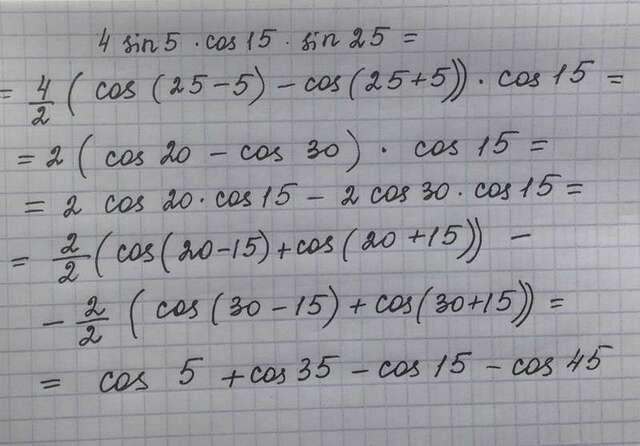 4 sin 5 · cos 15 · sin 25 =
= 4/2 ( cos (25-5) - cos (25+5)) · cos 15 =
= 2 ( cos 20 - cos 30 ) · cos 15 =
= 2 cos 20 · cos 15 - 2 cos 30 · cos 15 =
= 2/2 (cos(20-15)+cos(20+15)) -
- 2/2 ( cos (30-15) + cos(30+15)) =
= cos 5 + cos 35 - cos 15 - cos 45